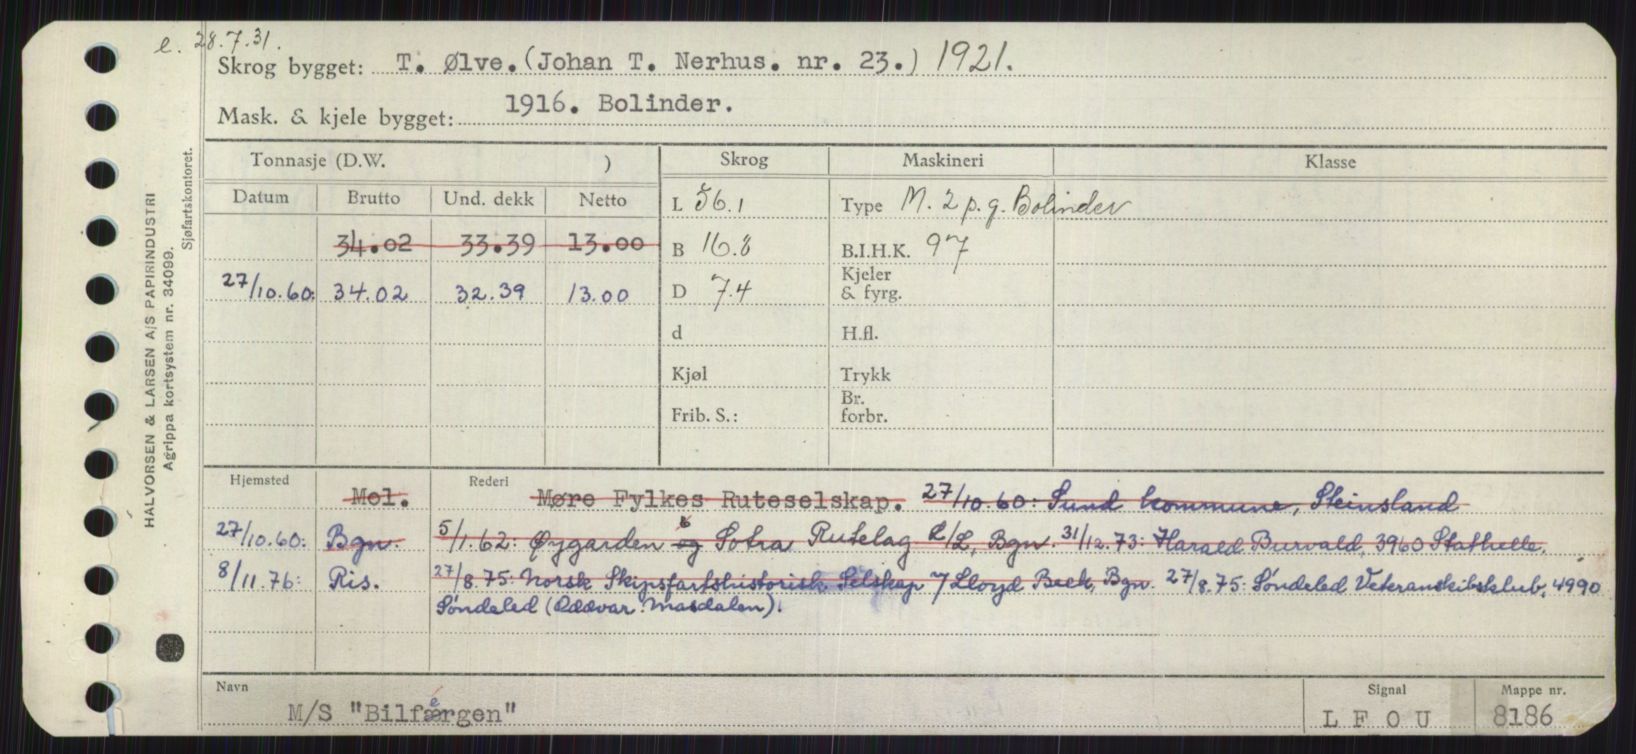 e. 28.7.31.
Skrog bygget: T. Ølve. (Johan T. Nerhus. nr. 23.) 1921.
Mask. & kjele bygget: 1916. Bolinder.
HALVORSEN & LARSEN A/S PAPIRINDUSTRI
Agrippa kortsystem nr. 34099.
Sjøfartskontoret.
Tonnasje (D.W. ) Skrog Maskineri Klasse
Datum Brutto Und. dekk Netto
L 56.1 Type M. 2 p. g. Bolinder
34.02 33.39 13.00 B 16.8 B.I.H.K. 97
27/10.60: 34.02 32.39 13.00 D 7.4 Kjeler & fyrg.
d H.fl.
Kjøl Trykk
Frib. S.: Br. forbr.
Hjemsted Rederi
Mol. Møre Fylkes Ruteselskap. 27/10.60: Sund kommune, Steinsland
27/10.60: Bgn. 5/1.62: Øygarden & Sotra Rutelag L/L, Bgn. 31/12.73: Harald Burvald, 3960 Stathelle.
8/11.76: Ris. 27/8.75: Norsk Skipsfartshistorisk Selskap v/ Lloyd Beck, Bgn. 27/8.75: Søndeled Veteranskibsklub, 4990
Søndeled (Oddvar Masdalen).
Navn Signal Mappe nr.
M/S "Bilfærgen" L F O U 8186